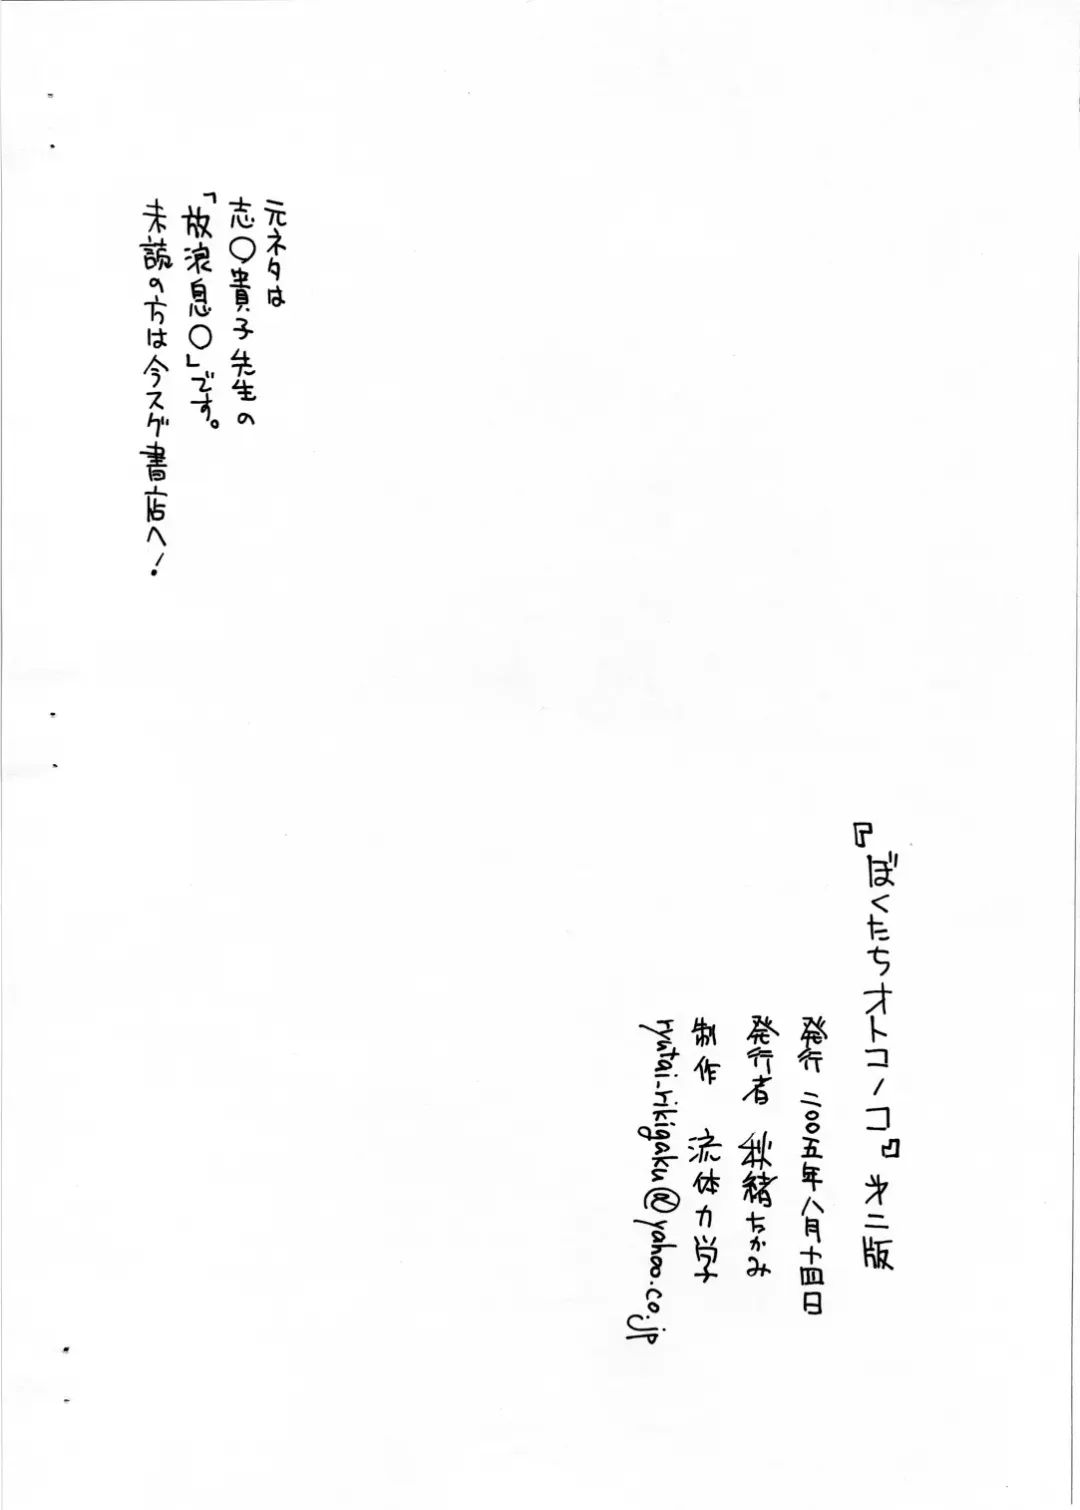 元ネタは
志〇貴子先生の
「放浪息〇」です。
未読の方は今スグ書店へ!
『ぼくたちオトコノコ』第二版
発行 二〇〇五年八月十四日
発行者 秋緒ちかみ
制作 流体力学
ryutai-rikigaku@yahoo.co.jp